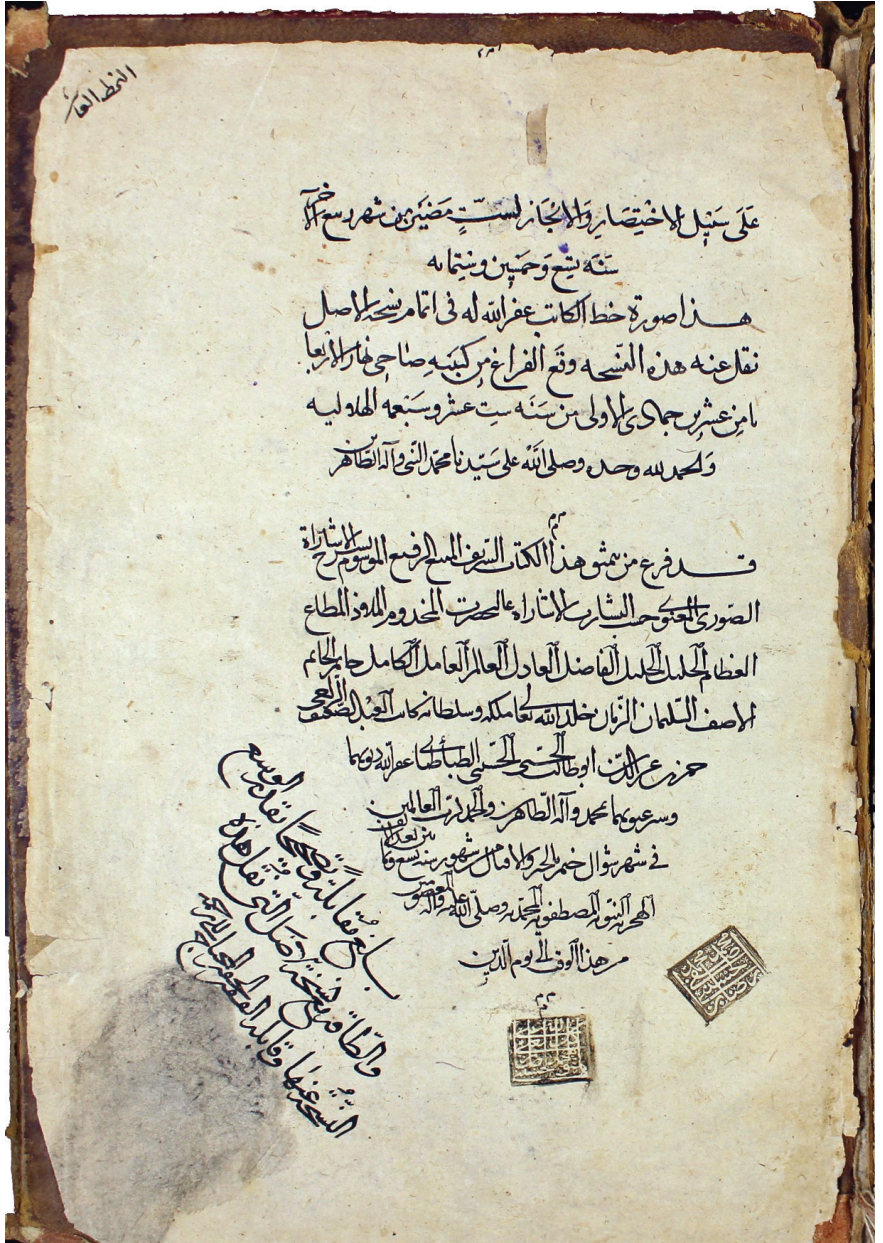 النمط العاشر
على سبيل الاختصار والايجاز لست مضين من شهر ربيع الآخر
سنه تسع وخمسين وستمائه
هذا صورة خط الكاتب غفر الله له فى اتمام نسخه الاصل
نقل عنه هذه النسخه وقع الفراغ من كتبته ضاحى نهار الاربعا
ثامن عشرين جمادى الاولى من سنه ست عشر وسبعمه الهلاليه
والحمد لله وحده وصلى الله على سيدنا محمد النبى وآله الطاهرين
قد فرغ من نمق هذا الكتاب الشريف المنيع الرفيع الموسوم بشرح الاشارات
الصورى المعنوى حسب الاشاراه عاليحضرت المخدوم الملاذ المطاع
العظام الجليل الفاضل العادل العالم العامل الكامل حاتم
الاصف السلمان الزمان خلد الله تعالى ملكه وسلطانه كاتب العبد الضعيف
حمزه بن عز الدين ابو طالب الحسنى الحسينى الطباطبائى غفر الله ذنوبهما
وستر عيوبهما بمحمد وآله الطاهرين والحمد لله رب العالمين
فى شهر شوال ختم بالخير والاقبال من شهور سنه تسع وثمانين بعد الف
الهجريه النبويه المصطفويه المحمديه وصلى الله عليه وآله المعصومين
من هذا الوقت الى يوم الدين
بلغ مقابلة وتصحيحا بقدر الوسع
والطاقة مع نسخة الاصل التى نقل هذه
النسخة عنها وقابله الفقير الحقير